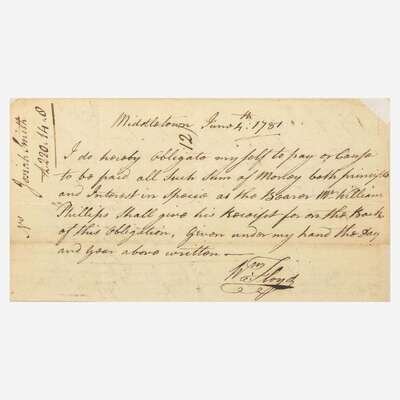 Middletown June 4th: 1781
I do hereby Obligate my self to pay or Cause
to be paid all Such Sum of Money both principle
and Interest in Specie as the Bearer Mr. William
Phillips shall give his Receipt for on the Back
of this Obligation, Given under my hand the Day
and Year above written
Wm. Floyd
Josiah Smith
£220.14.8
No
12